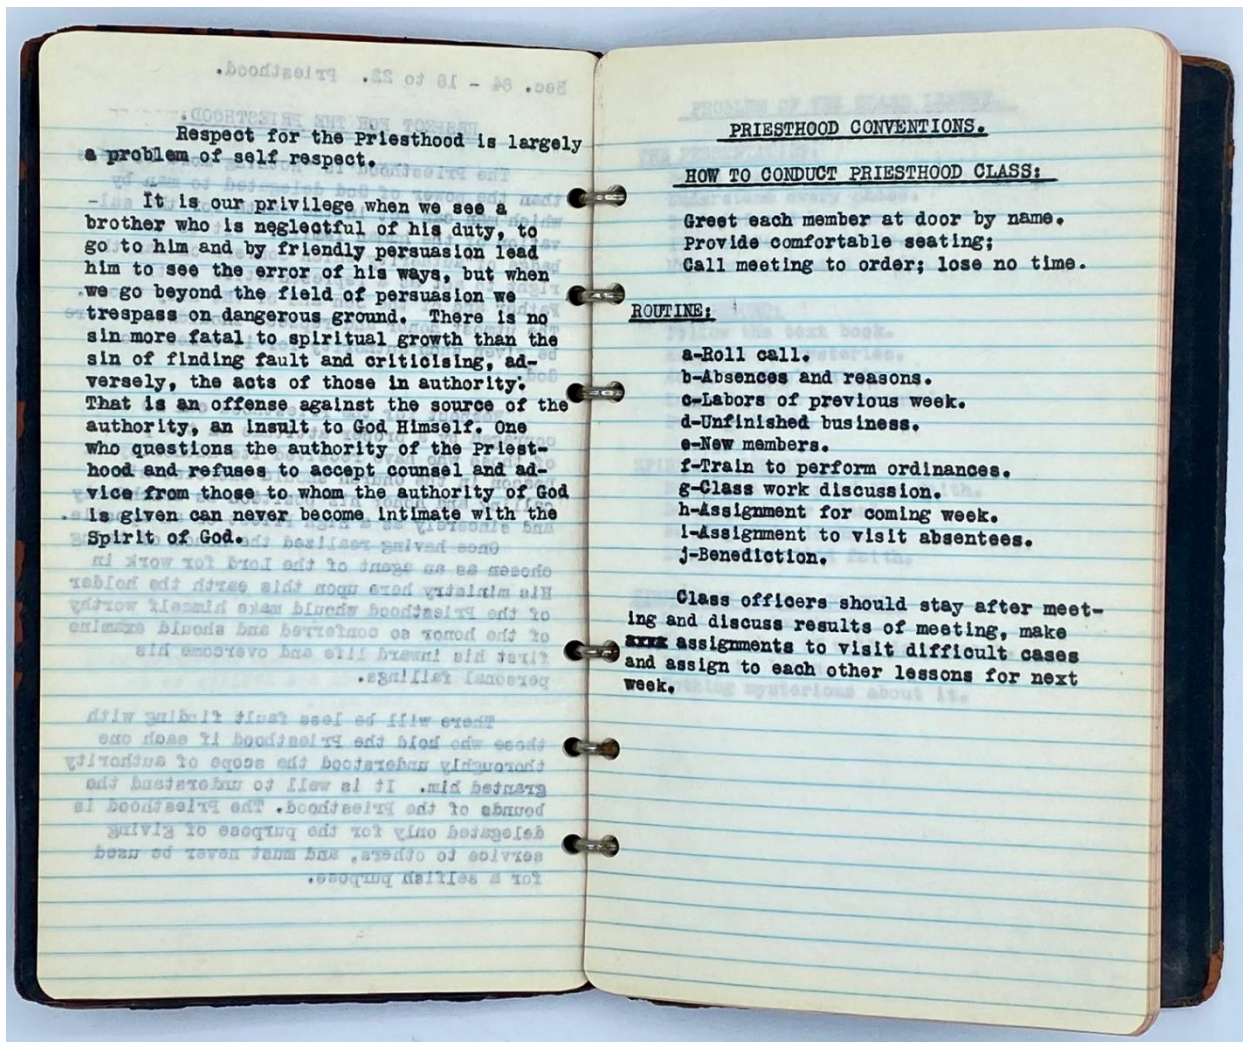 Respect for the Priesthood is largely
a problem of self respect.
It is our privilege when we see a
brother who is neglectful of his duty, to
go to him and by friendly persuasion lead
him to see the error of his ways, but when
we go beyond the field of persuasion we
trespass on dangerous ground. There is no
sin more fatal to spiritual growth than the
sin of finding fault and criticising, ad-
versely, the acts of those in authority.
That is an offense against the source of the
authority, an insult to God Himself. One
who questions the authority of the Priest-
hood and refuses to accept counsel and ad-
vice from those to whom the authority of God
is given can never become intimate with the
Spirit of God.
PRIESTHOOD CONVENTIONS.
HOW TO CONDUCT PRIESTHOOD CLASS:
Greet each member at door by name.
Provide comfortable seating;
Call meeting to order; lose no time.
ROUTINE:
a-Roll call.
b-Absences and reasons.
c-Labors of previous week.
d-Unfinished business.
e-New members.
f-Train to perform ordinances.
g-Class work discussion.
h-Assignment for coming week.
i-Assignment to visit absentees.
j-Benediction.
Class officers should stay after meet-
ing and discuss results of meeting, make
assignments to visit difficult cases
and assign to each other lessons for next
week.